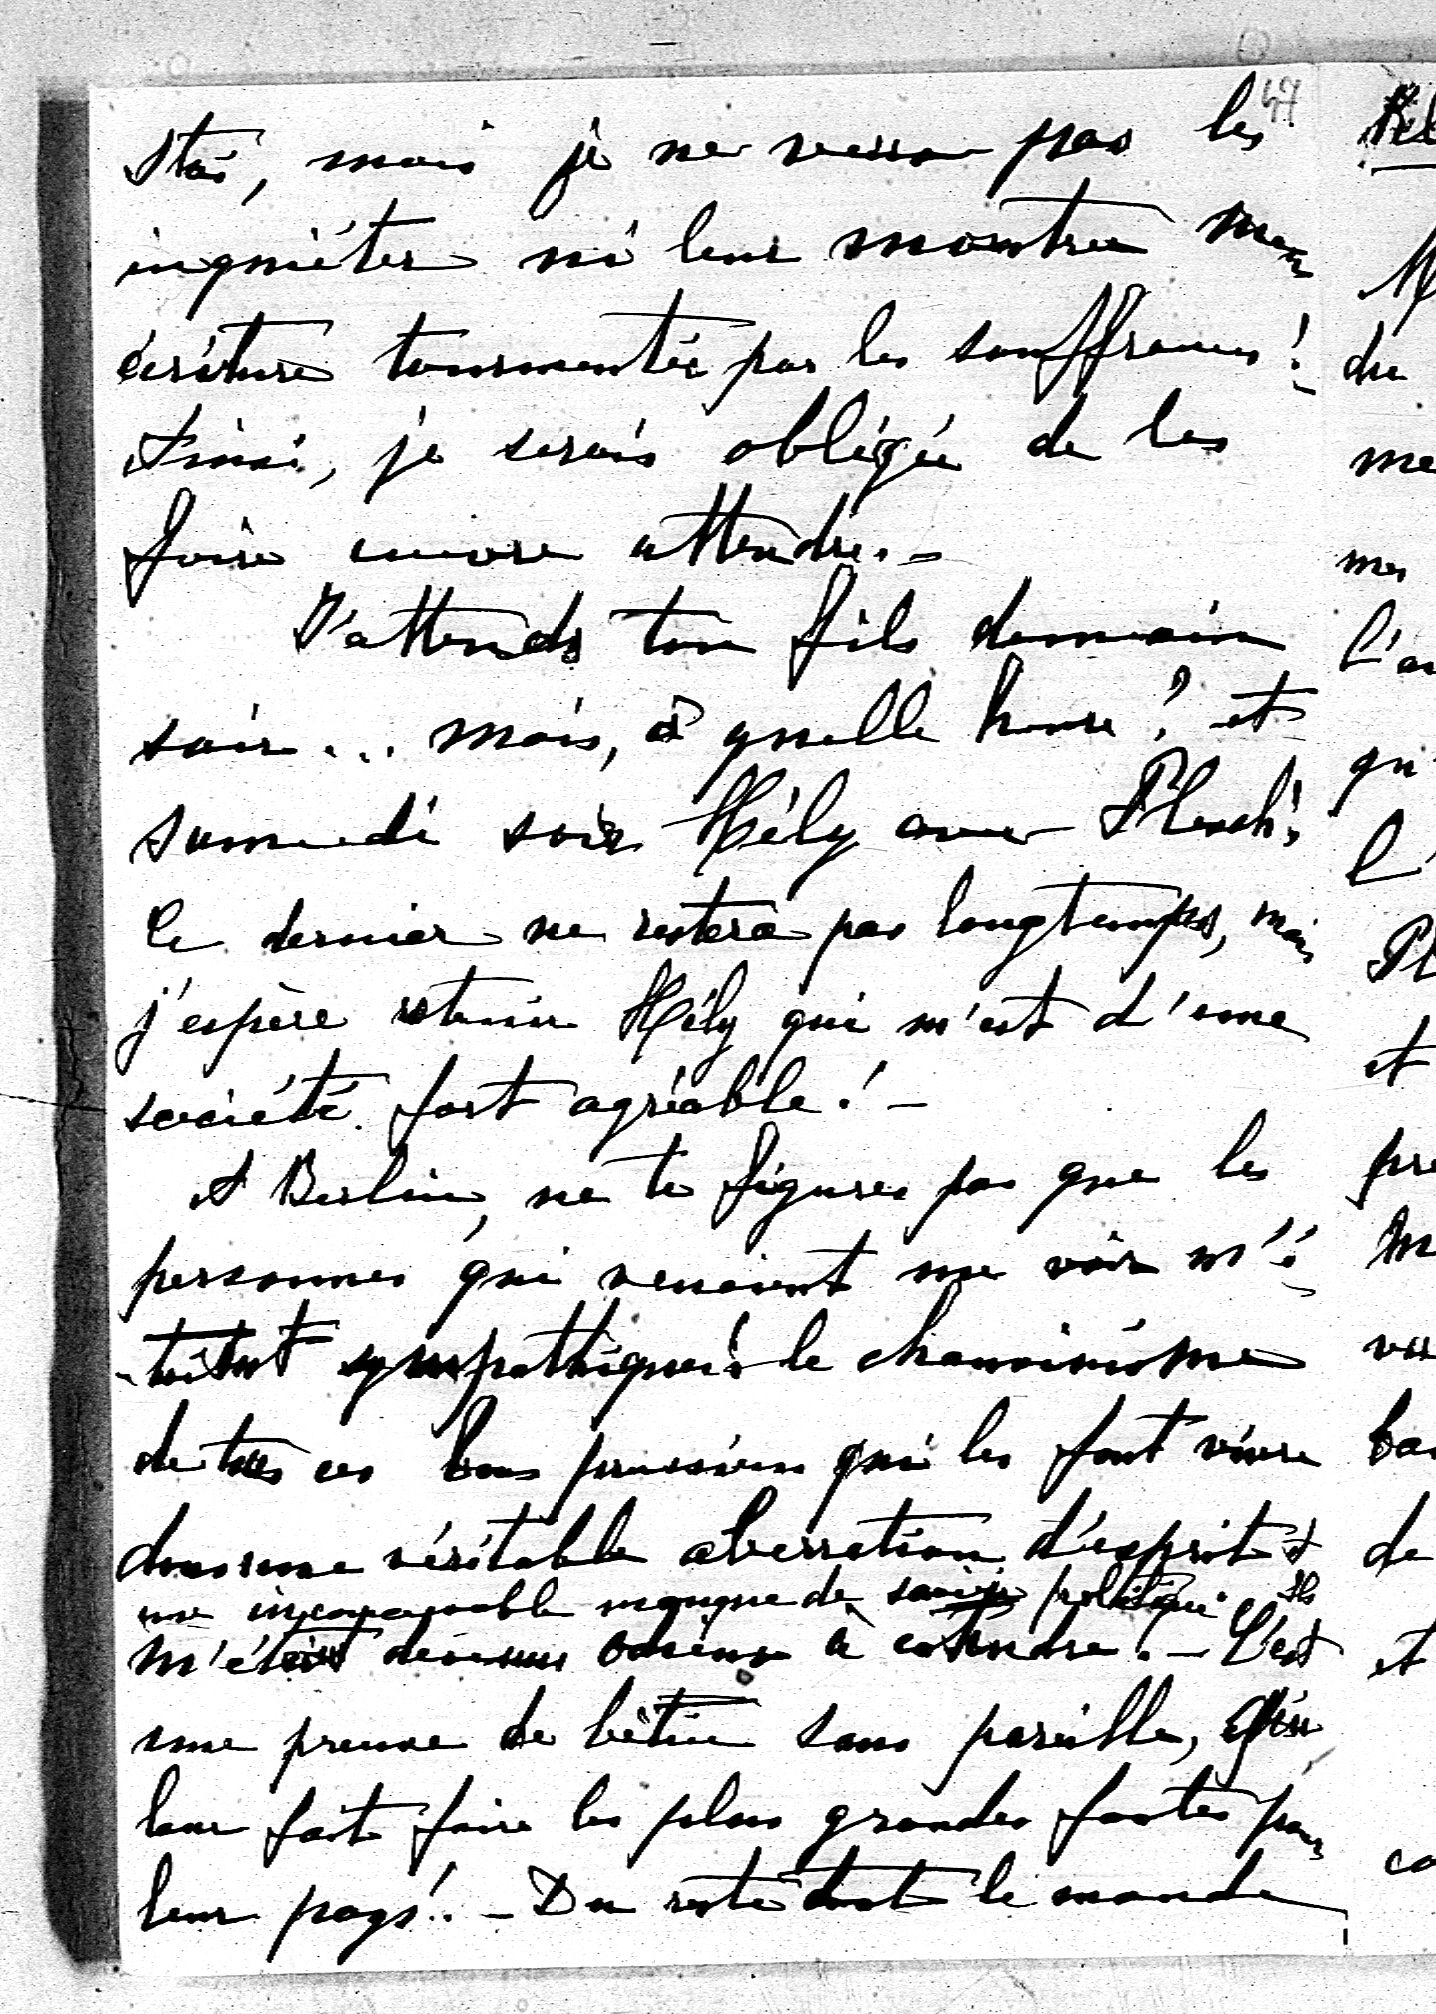 47
Stas, mais je ne veux pas les
inquiéter ni leur montrer mon
écriture tourmentée par les souffrances !
Ainsi, je serais obligée de les
faire encore attendre. -
J'attends ton fils demain
soir... mais, à quelle heure ? et
samedi soir Hély avec
Ce dernier ne restera pas longtemps, mais
j'espère retenir Hély qui m'est d'une
société fort agréable ! -
A Berlin, ne te figures pas que les
personnes qui venaient me voir m'é-
-taient sympathiques le chauvinisme
de tous ces bons prussiens qui les font vivre
dans une véritable aberration d'esprit &
une incroyable manque de politique. Ils
m'étaient devenus odieux à entendre. - C'est
une preuve de bêtise sans pareille, qui
leur fait faire les plus grandes fautes pour
leur pays !. - Du reste tout le monde
du
me
mes
qu'
et
de
et